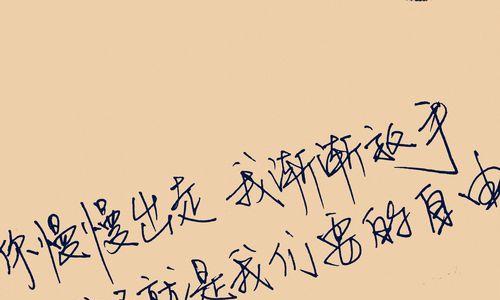 你慢慢出走 我渐渐放手
就是我们要的自由